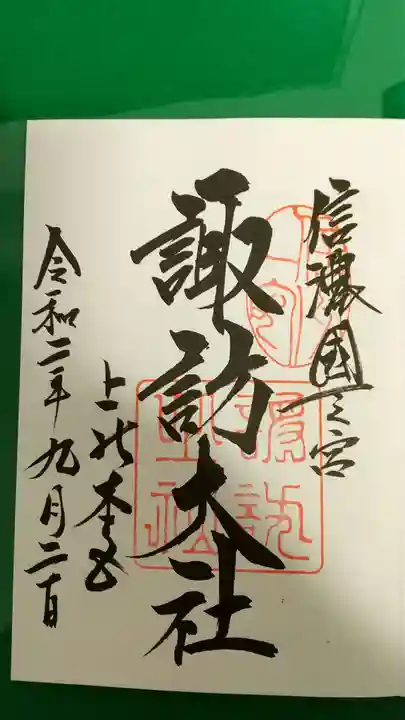 信濃國一之宮
諏訪大社
上社本宮
令和二年九月二日
諏訪大社